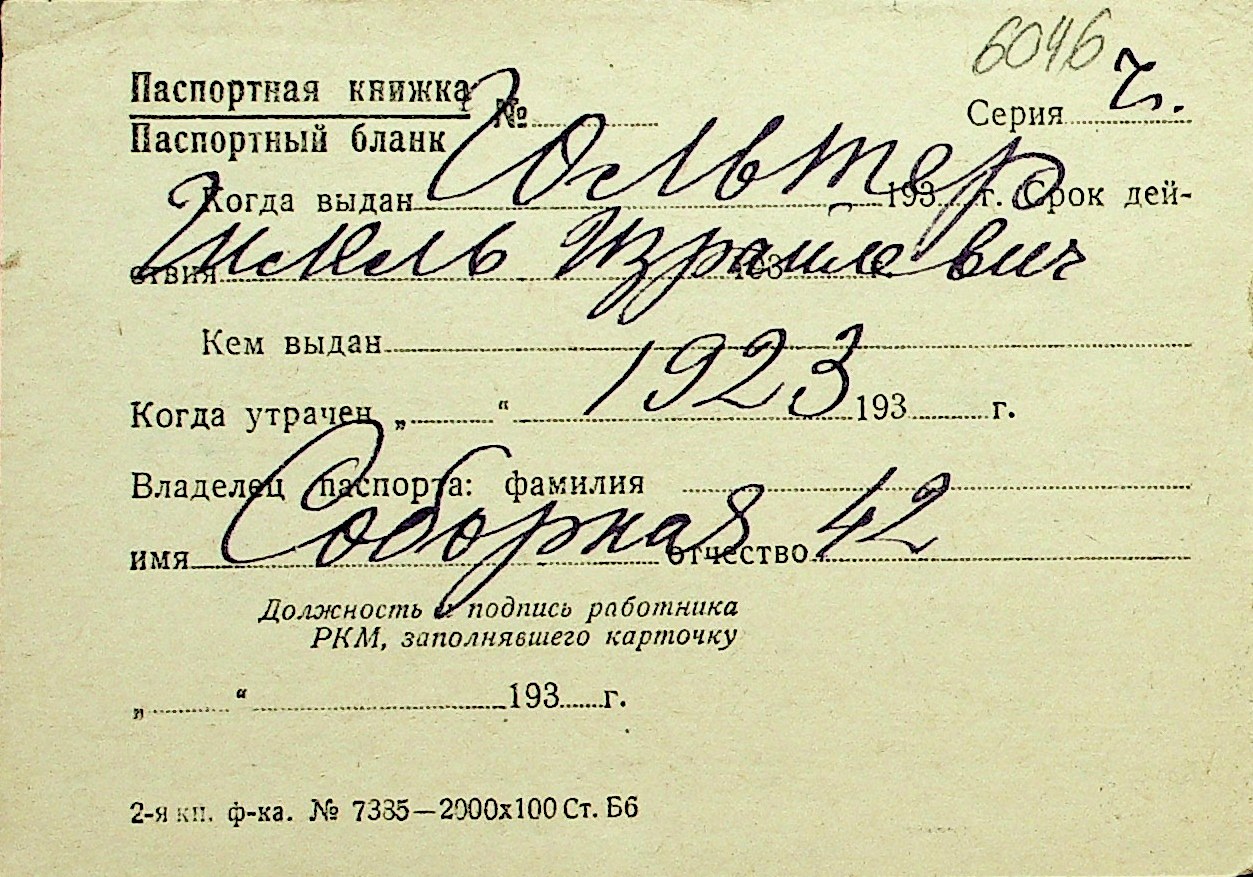 6046
Паспортная книжка № Серия ч.
Паспортный бланк
Гольтер
Когда выдан 193 г. Срок дей-
Израйлевич
ствия 193
Кем выдан
1923
Когда утрачен „ “ 193 г.
Владелец паспорта: фамилия
Соборная 42
имя отчество
Должность и подпись работника
РКМ, заполнявшего карточку
„ “ 193 г.
2-я кн. ф-ка. № 7385—2000х100 Ст. Бб